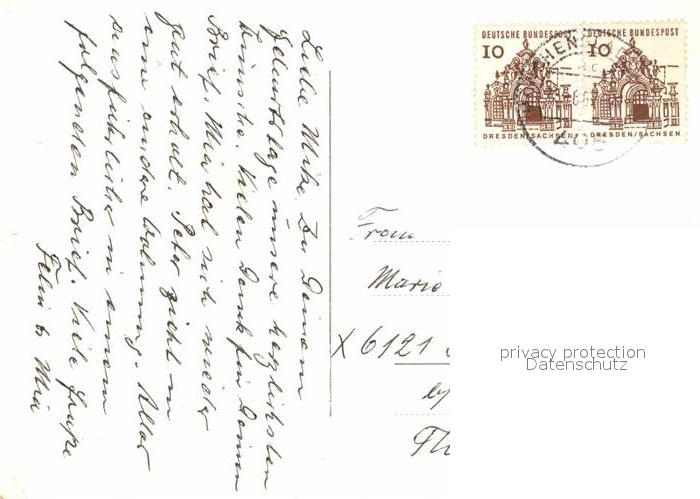 Liebe Mieke. Zu Deinem
Geburtstage unsere herzlichsten
Wünsche. Vielen Dank für Deinen
Brief. Mia hat sich wieder
gut erholt. Peter zieht in
eine andere Wohnung. Alles
ausführlicher in einem
folgenden Brief. Viele Grüße
& Mia
DEUTSCHE BUNDESPOST
10
DRESDEN/SACHSEN
DEUTSCHE BUNDESPOST
10
DRESDEN/SACHSEN
Frau
Marie
X 6121
privacy protection
Datenschutz